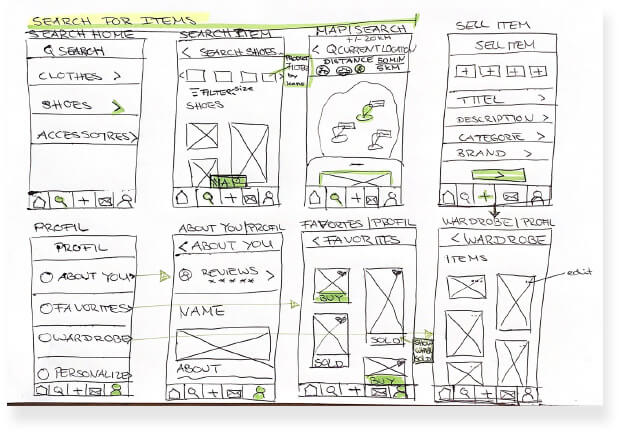 SEARCH FOR ITEMS
SEARCH HOME
SEARCH
CLOTHES >
SHOES >
ACCESSOIRES >
SEARCH ITEM
< SEARCH SHOES...
FILTER: size
SHOES
MAP
FILTER
by
MAP | SEARCH
+/- 20KM
< CURRENT LOCATION
DISTANCE 50 MIN
5KM
SELL ITEM
SELL ITEM
+ + + +
TITEL >
DESCRIPTION >
CATEGORIE >
BRAND >
>
PROFIL
PROFIL
ABOUT YOU >
FAVORITES >
WARDROBE >
PERSONALIZE >
ABOUT YOU/PROFIL
< ABOUT YOU
REVIEWS >
* * * * *
NAME
ABOUT
FAVORITES/PROFIL
< FAVORITES
BUY
SOLD
SOLD
BUY
SHOW
WHEN
SOLD
WARDROBE/PROFIL
< WARDROBE
ITEMS
edit